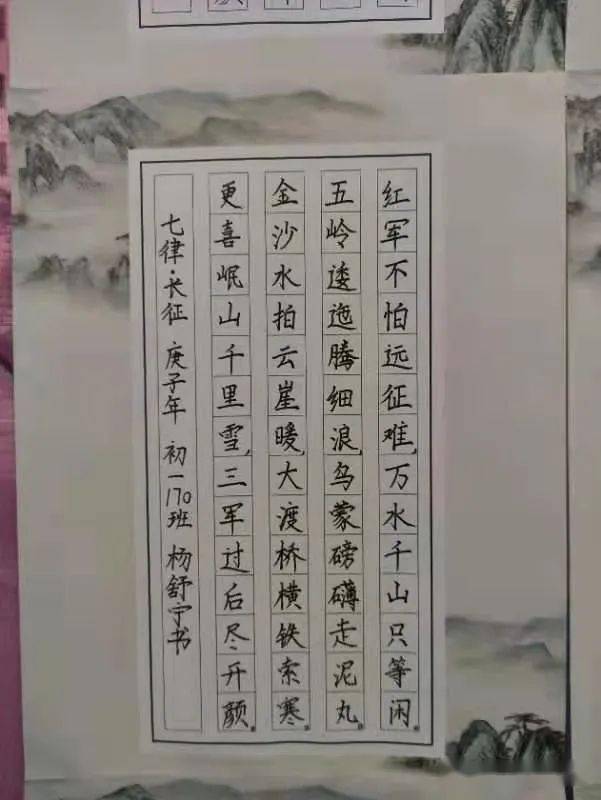 红军不怕远征难，万水千山只等闲。
五岭逶迤腾细浪，乌蒙磅礴走泥丸。
金沙水拍云崖暖，大渡桥横铁索寒。
更喜岷山千里雪，三军过后尽开颜。
七律·长征 庚子年 初一170班 杨舒宁书